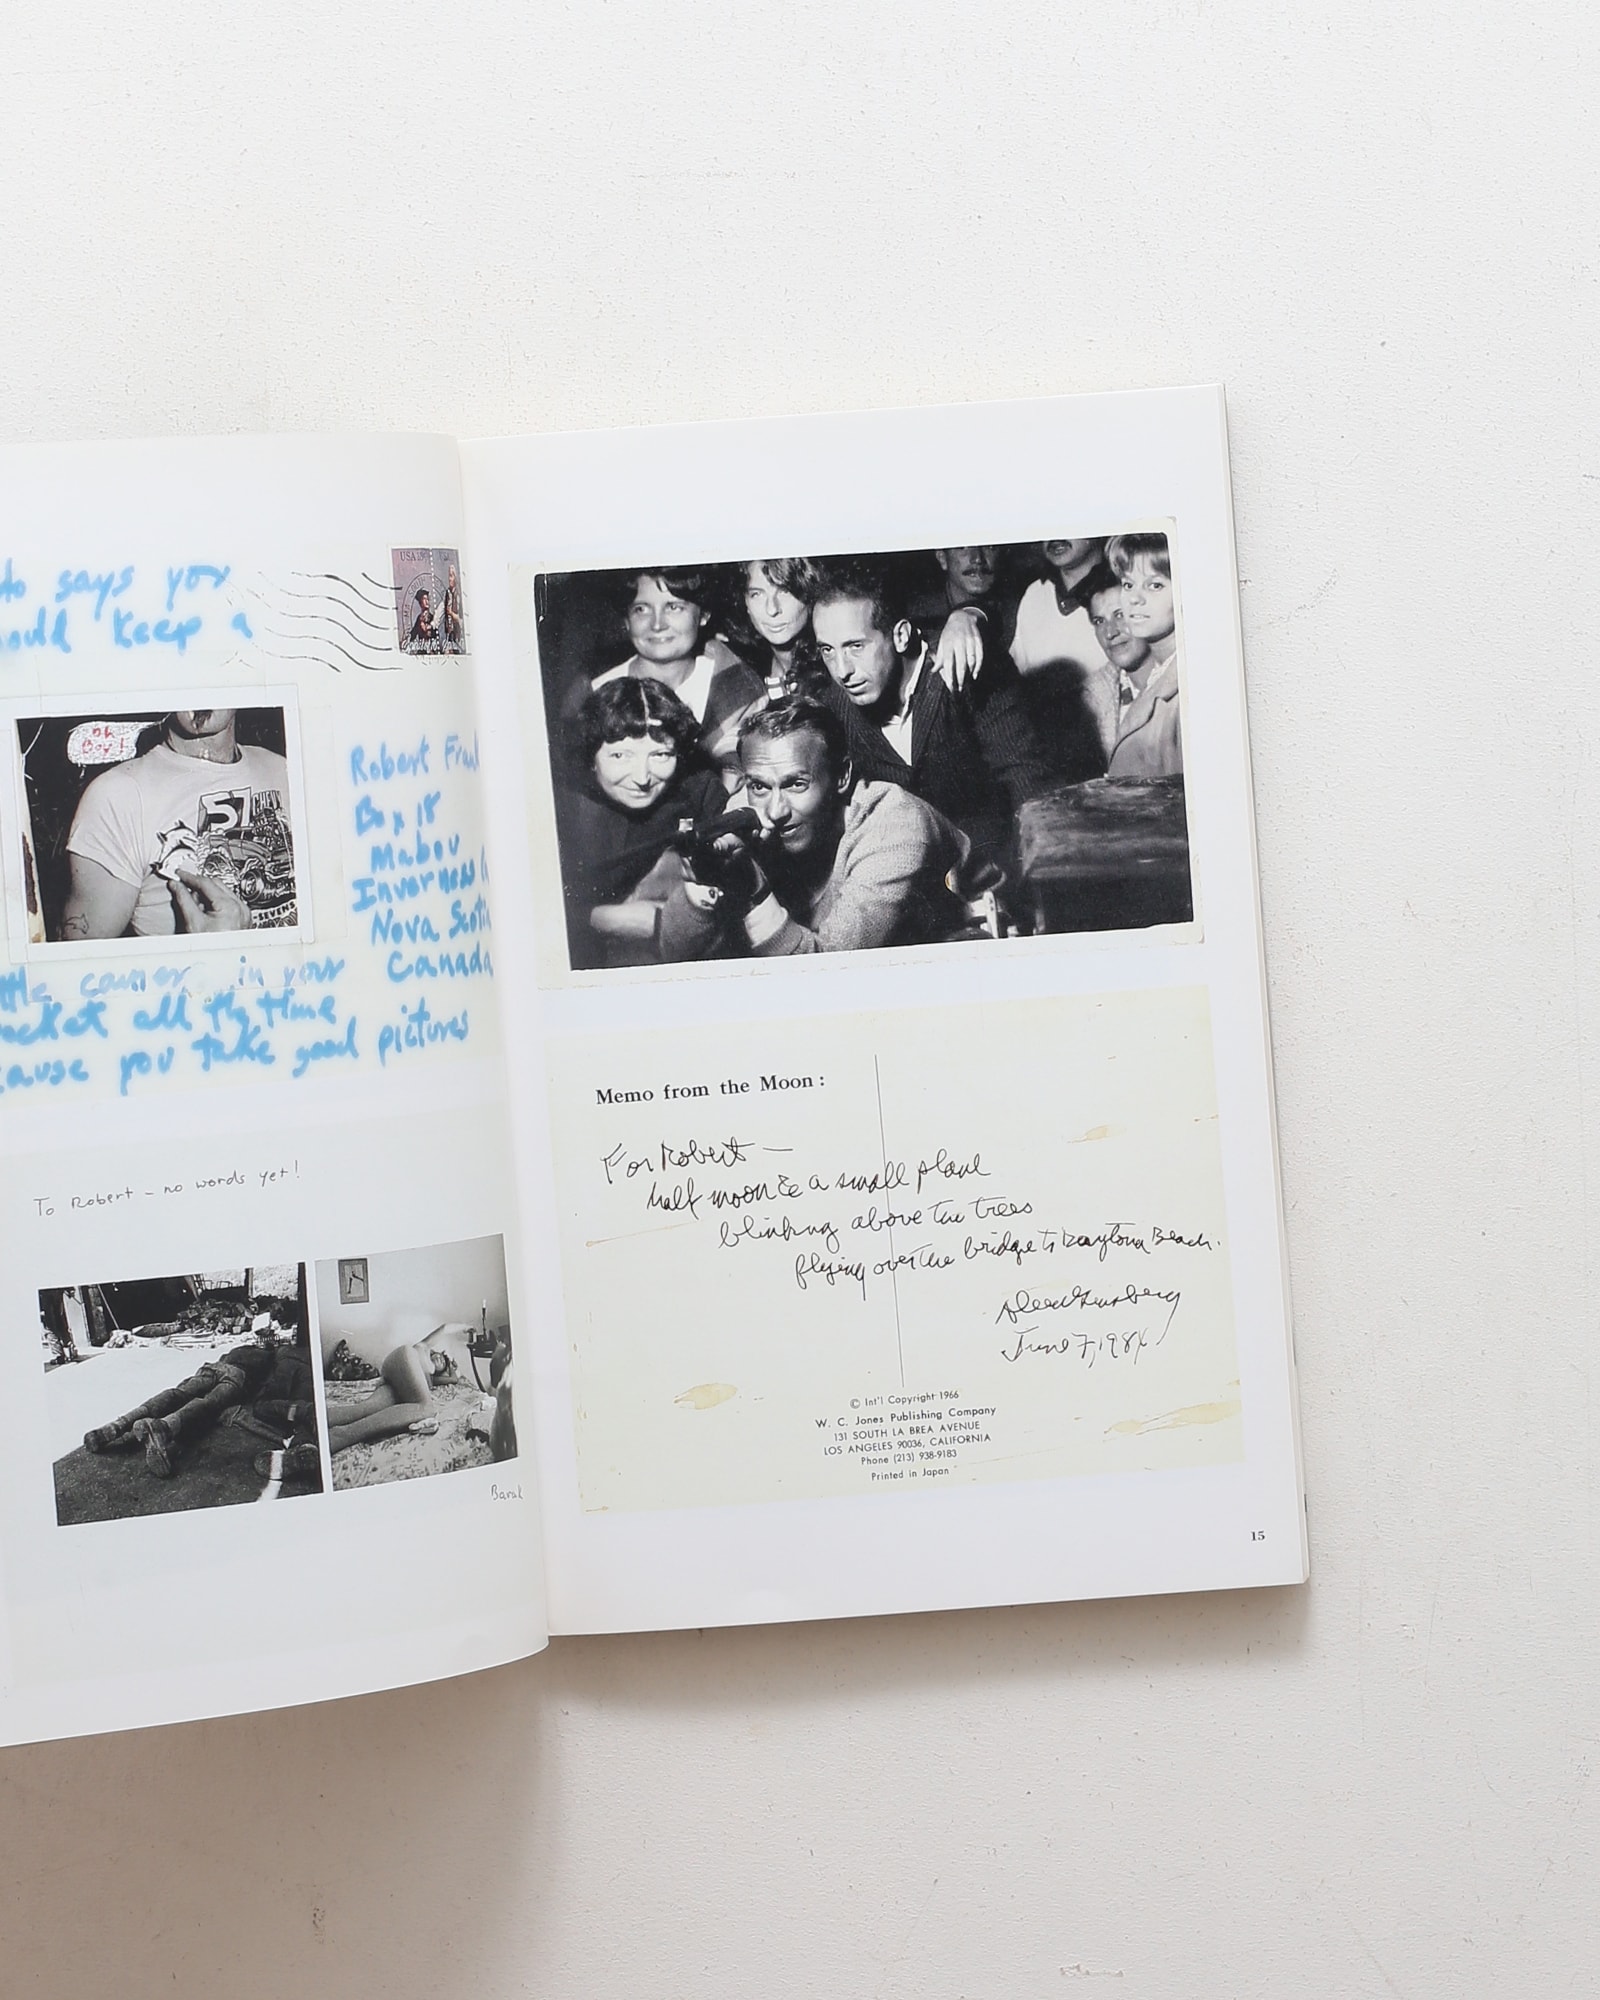 says you
keep a
USA
oh
Boy!
57 CHEV
-SEVENS
Robert Fran
Box 18
Mabou
Inverness
Nova Scoti
Canada
in your
all the time
you take good pictures
To Robert - no words yet!
Barak
Memo from the Moon:
For Robert —
half moon & a small plane
blinking above the trees
flying over the bridge to Daytona Beach.
Allen Ginsberg
June 7, 1984
© Int'l Copyright 1966
W. C. Jones Publishing Company
131 SOUTH LA BREA AVENUE
LOS ANGELES 90036, CALIFORNIA
Phone (213) 938-9183
Printed in Japan
15